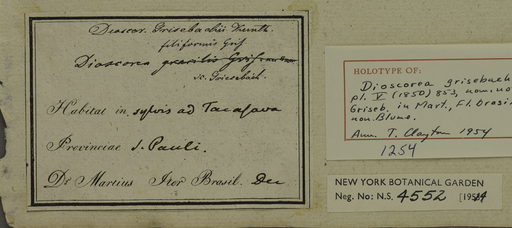 Dioscor. Grisebachii Kunth.
filiformis Gris
Dioscorea gracilis Gris.
sc. Griesebach.
Habitat in sylvis ad Tacasava
Provinciae S. Pauli.
Dr Martius Iter Brasil. Dec
HOLOTYPE OF:
Dioscorea grisebach
pl. V (1850) 853, nom. no
Griseb. in Mart., Fl. Brasi
non Blume.
Ann. T. Clayton 1954
1254
NEW YORK BOTANICAL GARDEN
Neg. No: N.S. 4552 [1954